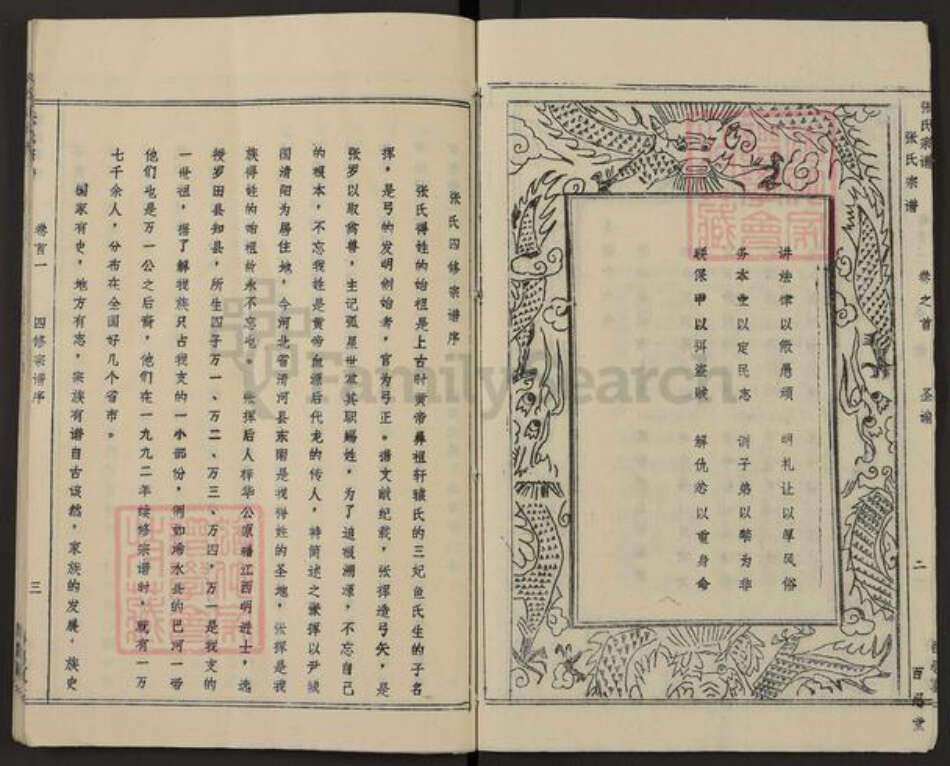 张氏宗谱
张氏宗谱 卷之首 圣谕 二 百忍堂
讲法律以儆愚顽 明礼让以厚风俗
务本业以定民志 训子弟以禁为非
联保甲以弭盗贼 解仇忿以重身命
张氏四修宗谱序
张氏得姓的始祖是上古时黄帝鼻祖轩辕氏的三妃鱼氏生的子名
挥，是弓的发明创始者，官为弓正。谱文献纪载，张挥造弓矢，是
张罗以取禽兽，主记弧星世袭其职赐姓，为了追根溯源，不忘自己
的根本，不忘我姓是黄帝血源后代龙的传人，特简述之。张挥以尹城
国清阳为居住地，今河北省清河县东南是我得姓的圣地，张挥是我
族得姓的始祖故永不忘也。张挥后人梓华公原籍江西明进士，选
授罗田县知县，所生四子万一、万二、万三、万四，万一是我支的
一世祖，据了解我族只占我支的一小部份，例如浠水县的巴河一带
他们也是万一公之后裔，他们在一九九二年续修宗谱时，就有一万
七千余人，分布在全国好几个省市。
国家有史，地方有志，宗族有谱自古该然，家族的发展，族史
卷首一 四修宗谱序 三
FamilySearch